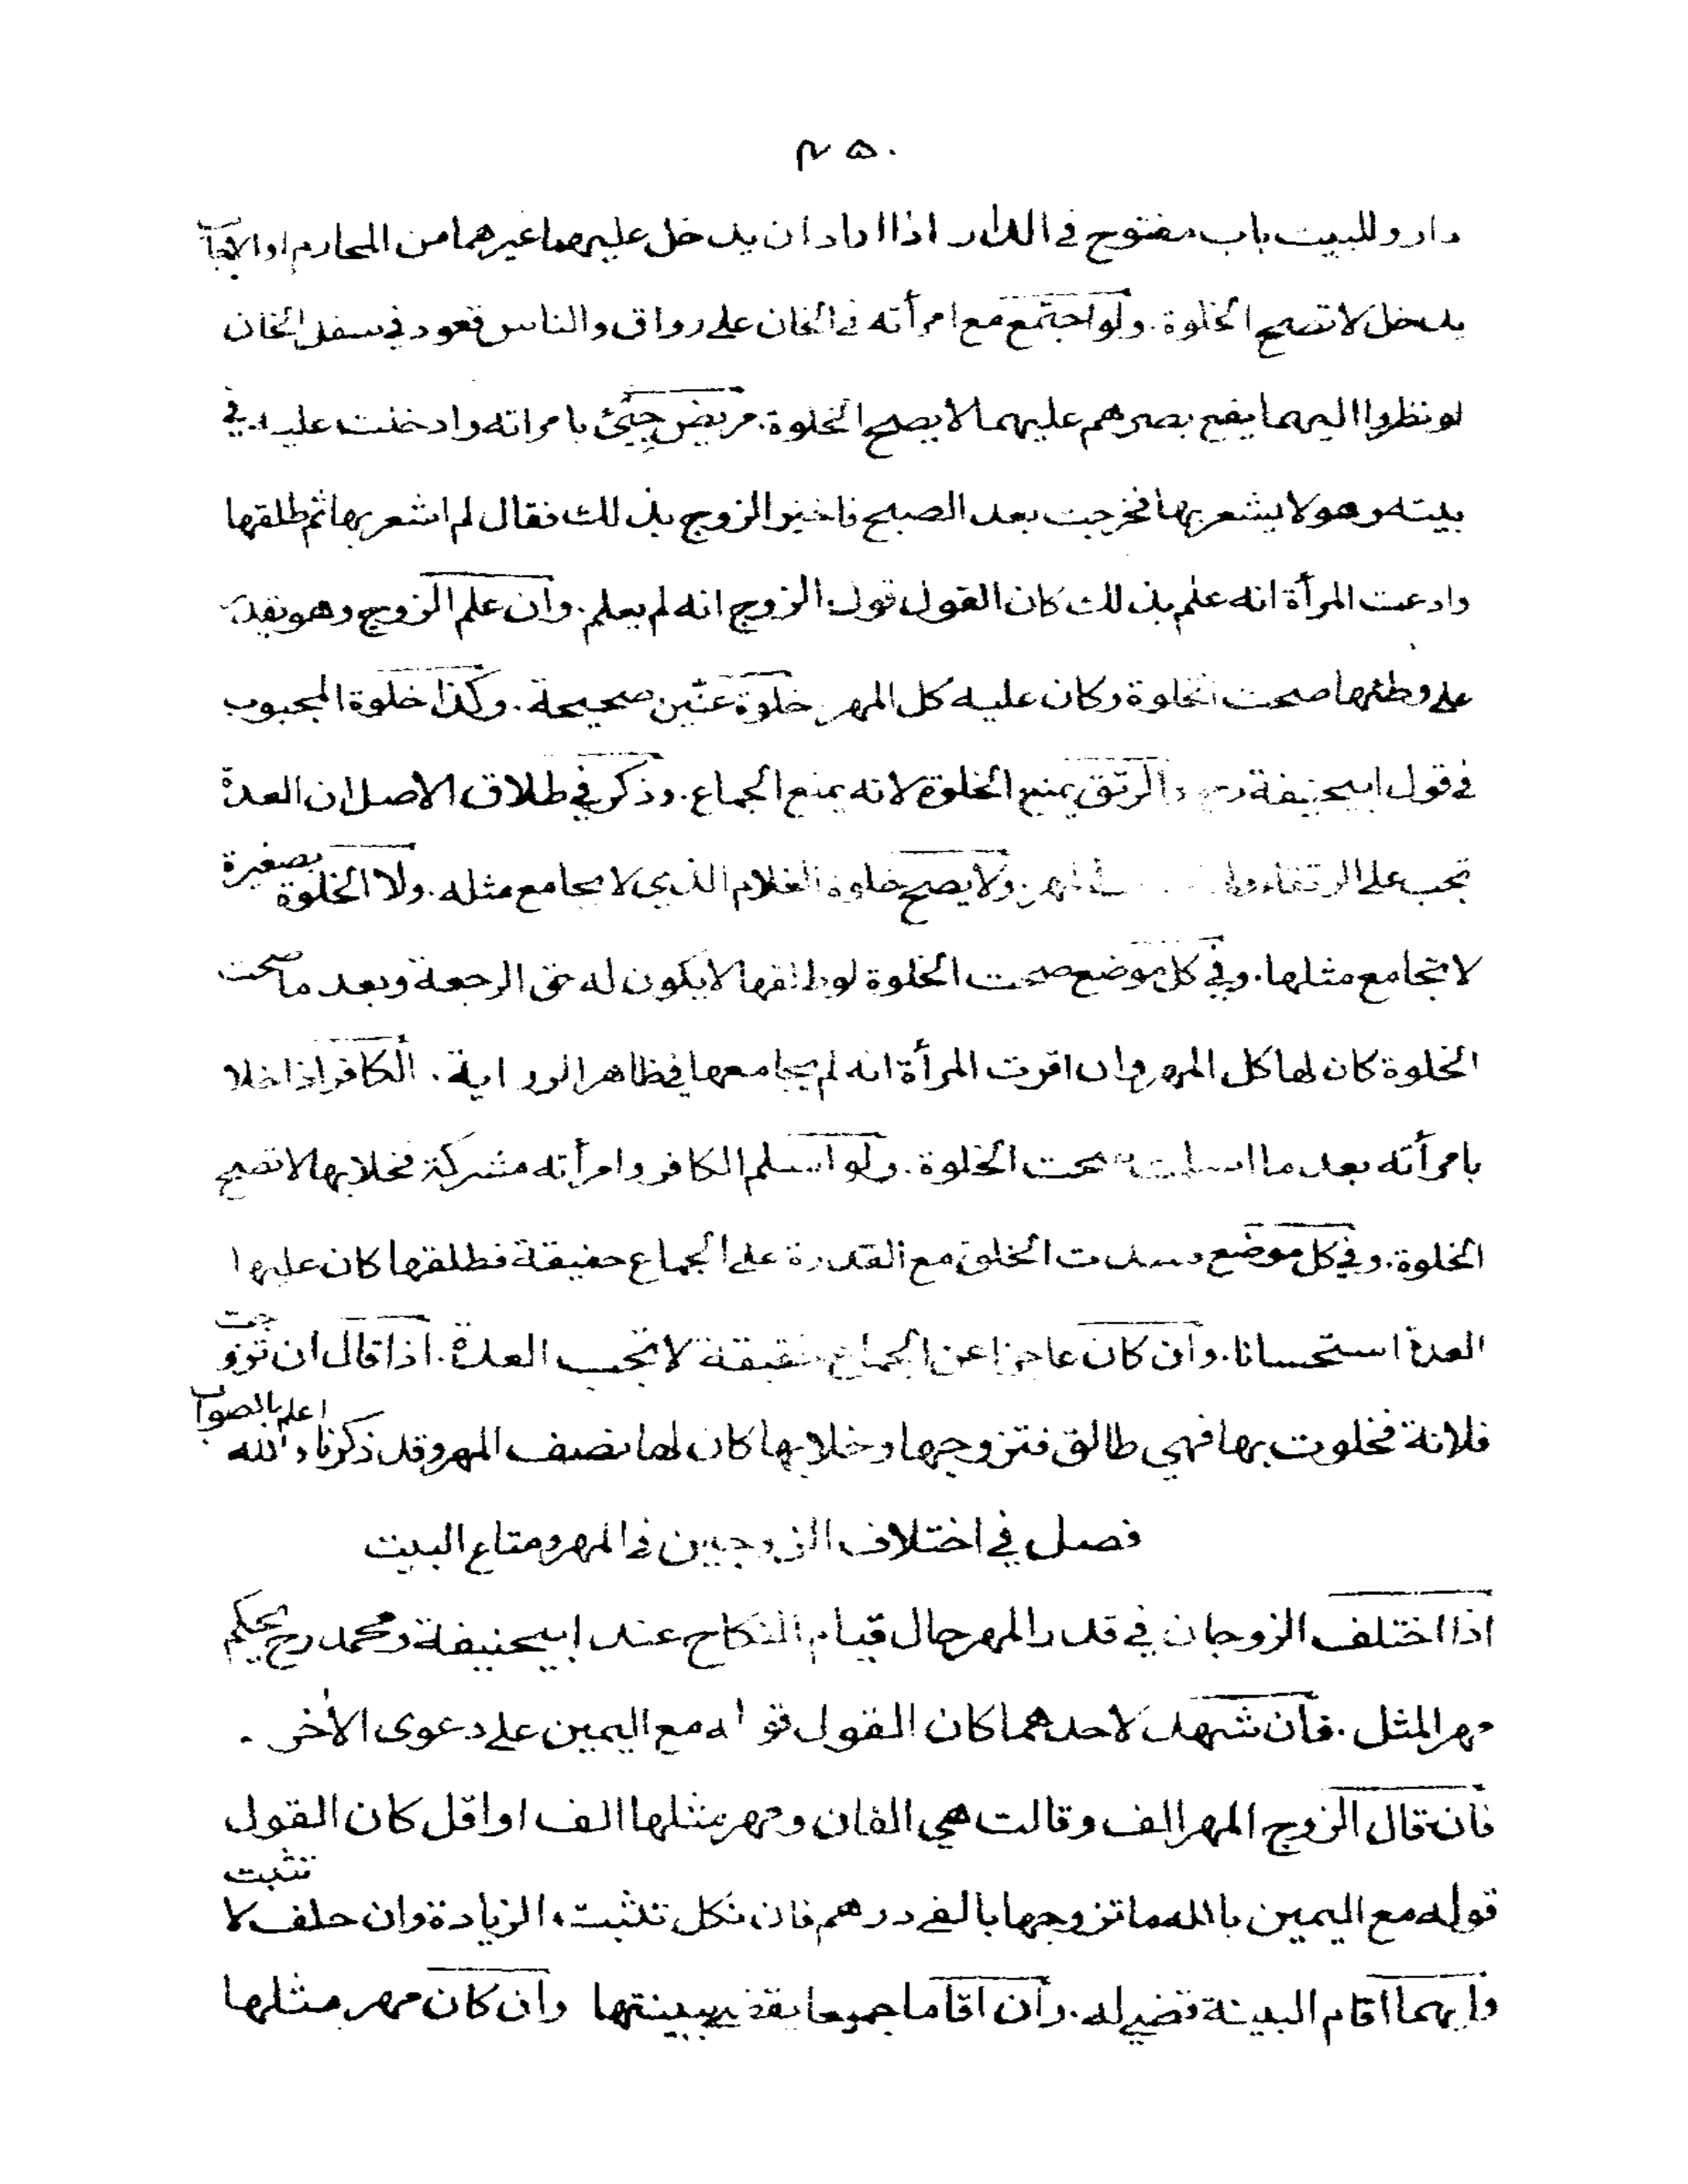 ٤٥٠
دار وللبيت باب مفتوح في الدار اذا اراد ان يدخل عليهما غيرهما من المحارم او الاجانب
يدخل لا تصح الخلوة. ولو اجتمع مع امرأته في الخان على رواق والناس قعود في سفل الخان
لو نظروا اليهما يقع بصرهم عليهما لا يصح الخلوة. مريض جيئ بامراته وادخلت عليه في
بيته وهو لا يشعر بها فخرجت بعد الصبح فاخبر الزوج بذلك فقال لم اشعر بها ثم طلقها
وادعت المرأة انه علم بذلك كان القول قول الزوج انه لم يعلم. وان علم الزوج وهو يقدر
على وطئها صحت الخلوة وكان عليه كل المهر. خلوة عنّين صحيحة. وكذا خلوة المجبوب
في قول ابيحنيفة رح والرتق يمنع الخلوة لانه يمنع الجماع. وذكر في طلاق الاصل ان العدة
تجب على الرتقاء ولها المهر. ولا يصح خلوة الغلام الذي لا يجامع مثله. ولا الخلوة بصغيرة
لا تجامع مثلها. وفي كل موضع صحت الخلوة لو طلقها لا يكون له حق الرجعة وبعد ما صحت
الخلوة كان لها كل المهر وان اقرت المرأة انه لم يجامعها في ظاهر الرواية. الكافر اذا خلا
بامرأته بعد ما اسلمت صحت الخلوة. ولو اسلم الكافر وامرأته مشركة فخلا بها لا تصح
الخلوة. وفي كل موضع فسدت الخلوة مع القدرة على الجماع حقيقة فطلقها كان عليها
العدة استحسانا. وان كان عاجزا عن الجماع حقيقة لا تجب العدة. اذا قال ان تزوجت
فلانة فخلوت بها فهي طالق فتزوجها وخلا بها كان لها نصف المهر وقد ذكرناه والله اعلم بالصواب
فصل في اختلاف الزوجين في المهر ومتاع البيت
اذا اختلف الزوجان في قدر المهر حال قيام النكاح عند ابيحنيفة ومحمد رح يحكم
مهر المثل. فان شهد لاحدهما كان القول قوله مع اليمين على دعوى الاخر.
فان قال الزوج المهر الف وقالت هي الفان ومهر مثلها الف او اقل كان القول
قوله مع اليمين بالله ما تزوجها بالفي درهم فان نكل تثبت الزيادة وان حلف لا تثبت
وايهما اقام البينة قضي له. وان اقاما جميعا يقضى ببينتها وان كان مهر مثلها